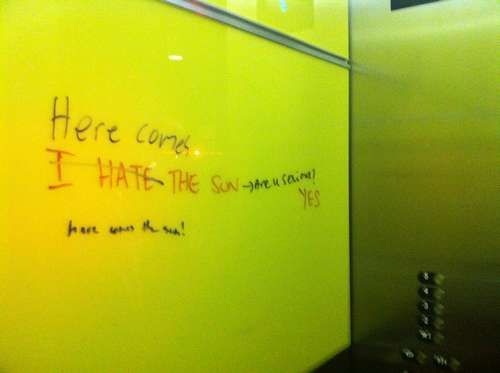 Here comes
I HATE THE SUN → Are u serious!
YES
Here comes the sun!